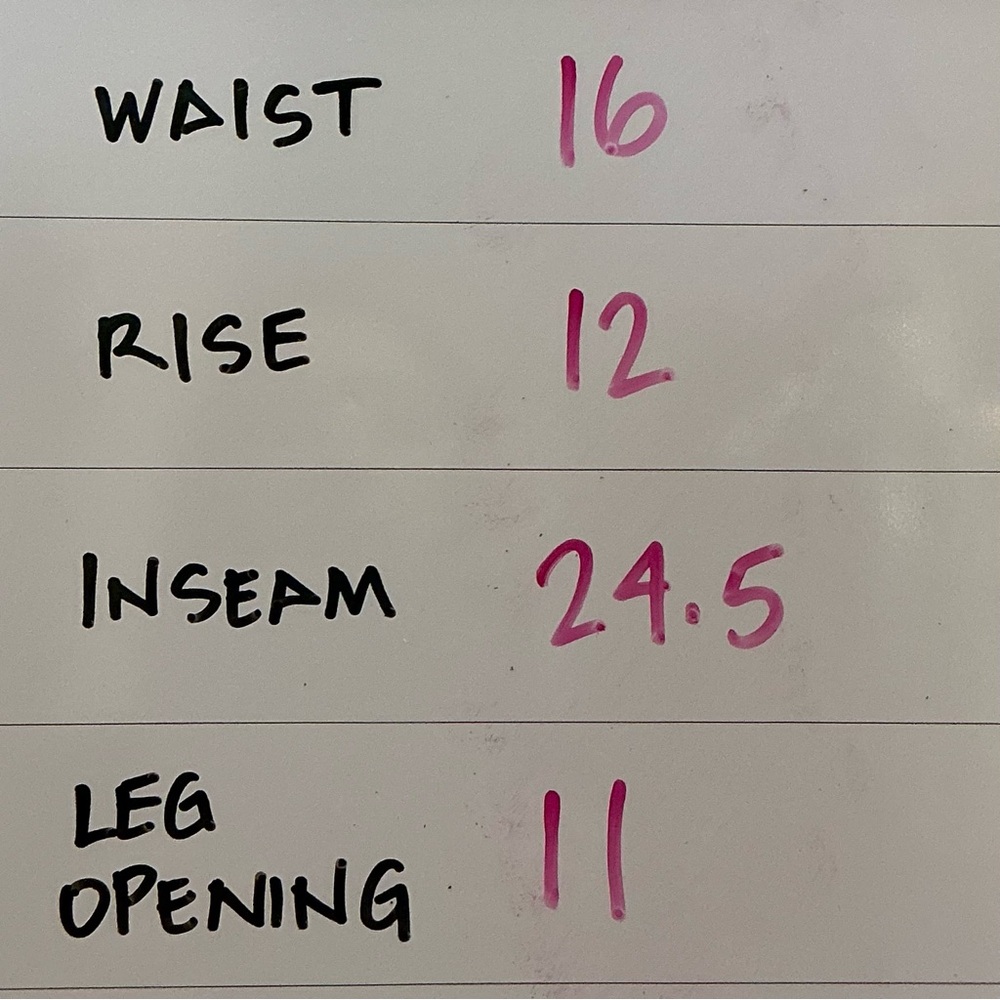 WAIST 16
RISE 12
INSEAM 24.5
LEG
OPENING 11